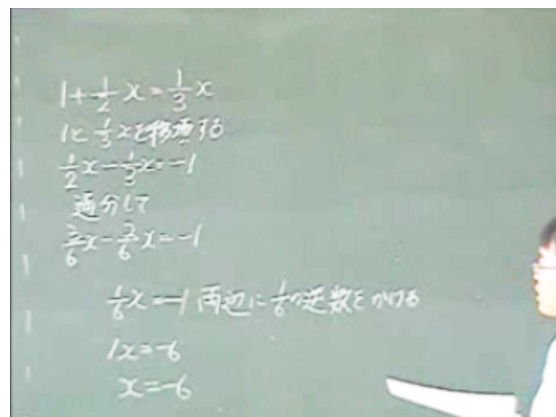 1+1/2 x=1/3 x
1と1/3xを移項する
1/2x-1/3x=-1
通分して
3/6x-2/6x=-1
1/6x=-1 両辺に1/6の逆数をかける
1x=-6
x=-6